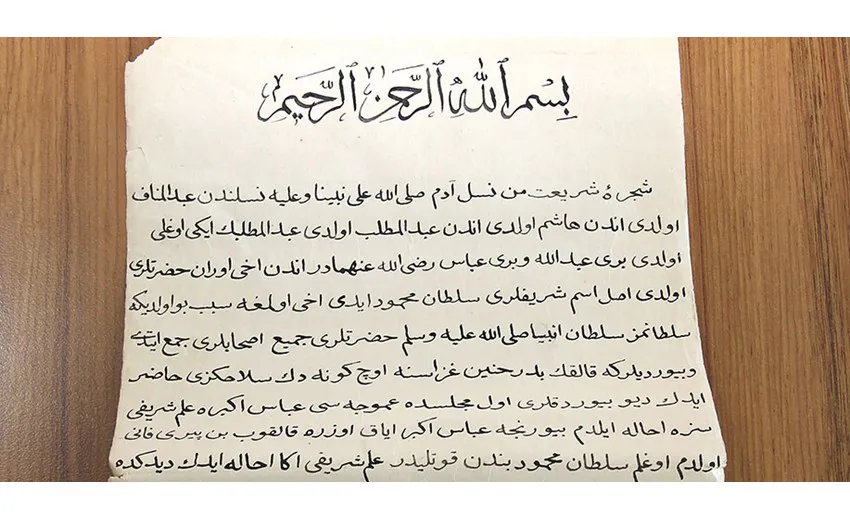 بسم الله الرحمن الرحيم
شجرۀ شریعت من نسل آدم صلی الله علی نبینا وعلیه نسلندن عبد المناف
اولدی اندن هاشم اولدی اندن عبد المطلب اولدی عبد المطلبك ایکی اوغلی
اولدی بری عبد الله وبری عباس رضی الله عنهمادر اندن اخی اوران حضرتلری
اولدی اصل اسم شریفلری سلطان محمود ایدی اخی اولغه سبب بو اولدیکه
سلطانمز سلطان انبیا صلی الله علیه وسلم حضرتلری جمیع اصحابلری جمع ایتدی
وبیوردیلرکه قالقك بدر حنین غزاسنه اوچ کونه دك سلاحکزی حاضر
ایدك دیو بیوردقلری اول مجلسده عموجه سی عباس اکبره علم شریفی
سزه احاله ایلدم بیورنجه عباس اکبر ایاق اوزره قالقوب بن پیری فانی
اولدم اوغلم سلطان محمود بندن قوتلیدر علم شریفی اکا احاله ایدك دیدکده